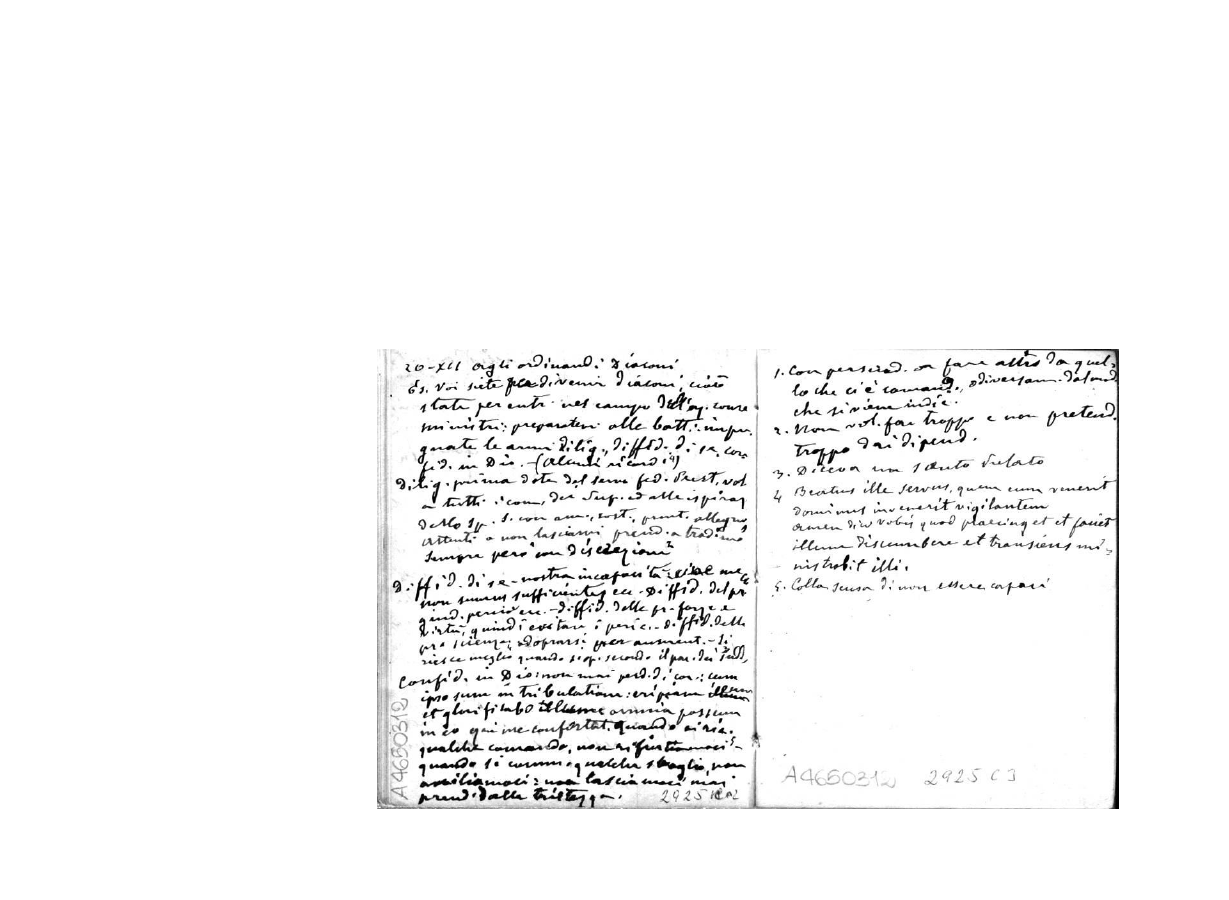 20-XII agli ordinandi Diaconi
Es. Voi siete per divenir diaconi, cioè
state per entr. nel campo dell'az. come
ministri: preparatevi alle batt. impu-
gnate le armi dilig., diffid. di se, con-
fid. in Dio. - (Alcuni ricordi)
Dilig. prima dote del servo fed. Prest. vol
a tutti i com. dei Sup. ed alle ispiraz
dello Sp. S. con am., cost., pront. allegria
attenti a non lasciarvi prend. a tradim.
sempre però con discrezione
Diffid. di se - nostra incapacità:
non sumus sufficientes ec - Diffid. del pr
giud. - diffid. delle pr. forze e
virtù, quindi evitare i peric. - diffid. della
pro scienza; adoprarsi per aument. - Si
riesce meglio quando si op. secondo il par. dei
Confid. in Dio: non mai perd. di cor.: cum
ipso sum in tribulatione: eripiam
et glorificabo omnia possum
in eo qui me confortat. quando ci ria.
qualche comando, non rifiutiamoci -
quando si comm. qualche sbaglio, non
avviliamoci: non lasciamoci mai
prend. dalla tristezza.
2925 C2
A4650312
1. Con persuad. a fare altro da quel-
lo che ci è comand., o diversam. da
che si viene indic.
2. Non vol. far troppo e non pretend.
troppo dai dipend.
3. Diceva un santo Prelato
4 Beatus ille servus, quem cum venerit
dominus invenerit vigilantem
amen dico vobis quod praecinget et faciet
illum discumbere et transiens mi-
nistrabit illi.
5. Colla scusa di non essere capaci
A4650312 2925 C3